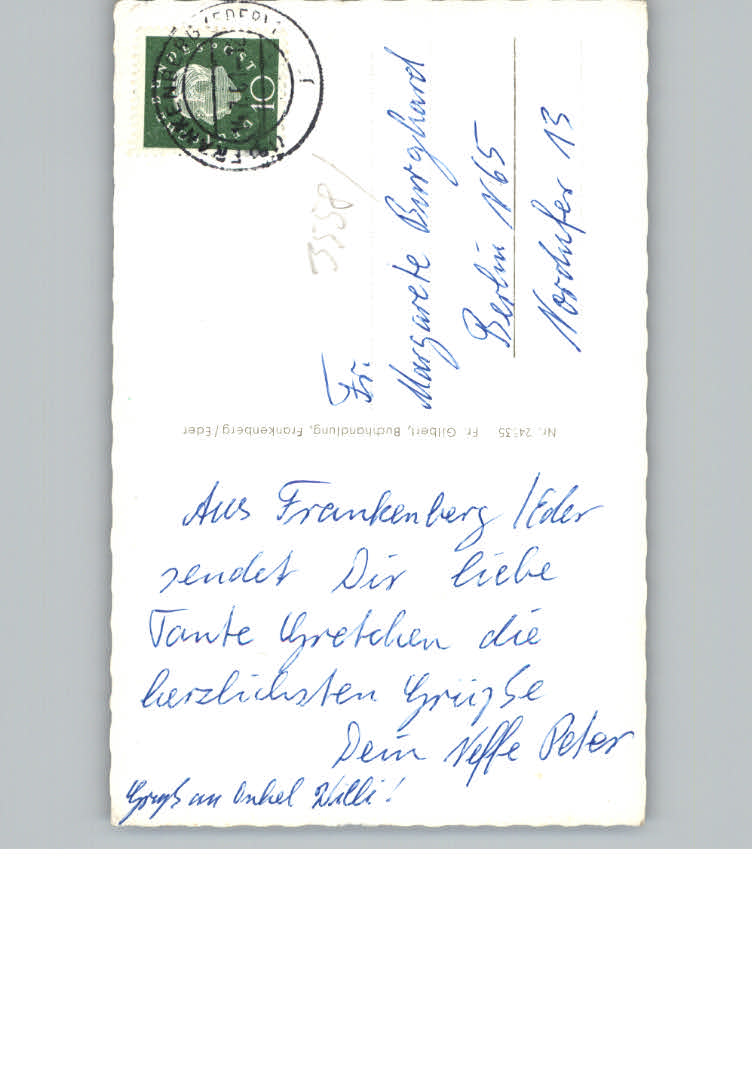 Aus Frankenberg/Eder
sendet Dir liebe
Tante Gretchen die
herzlichsten Grüße
Dein Neffe Peter
Gruß an Onkel Willi!
Fr.
Margarete Burghard
Berlin N65
Nordufer 13
3558/
Fr. Gilbert, Buchhandlung, Frankenberg/Eder
BUNDESPOST
10
FRANKENBERG (EDER)